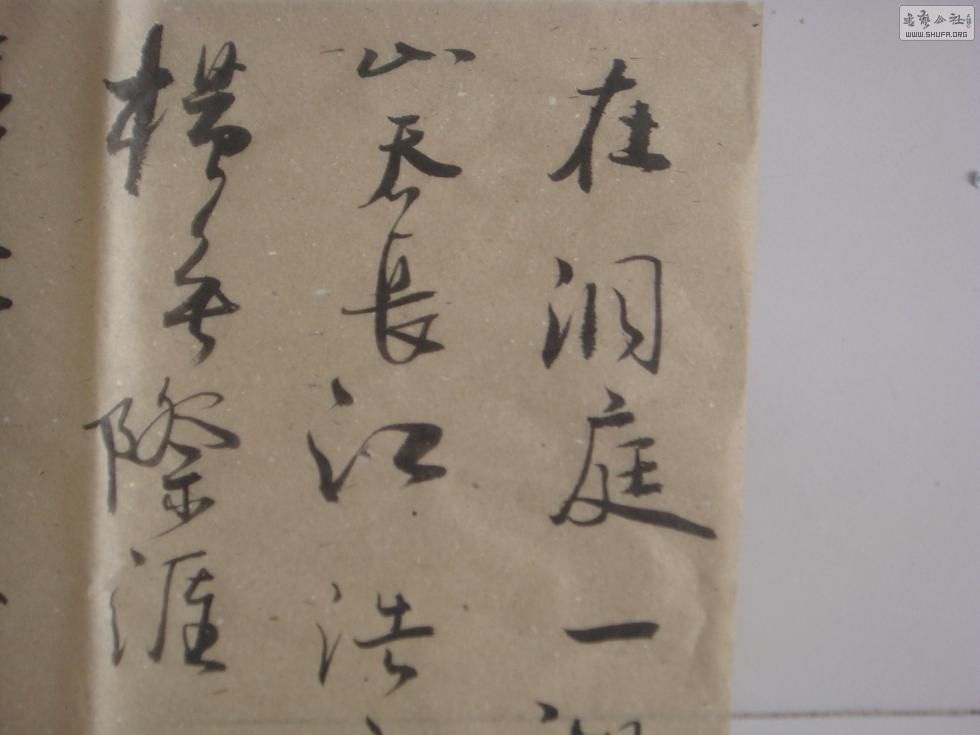 在洞庭一
山吞長江浩
橫無際涯
書藝公社
WWW.SHUFA.ORG